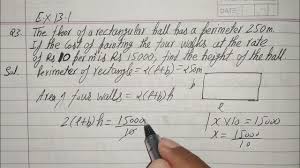 EX 13.1
Q3. The floor of a rectangular hall has a perimeter 250m.
If the cost of painting the four walls at the rate
of Rs 10 per m² is Rs 15000, find the height of the hall.
Sol. Perimeter of rectangle = 2(l+b) = 250m
Area of four walls = 2(l+b)h
2(l+b)h = 15000/10
l
b
1 x x 10 = 15000
x = 15000/10